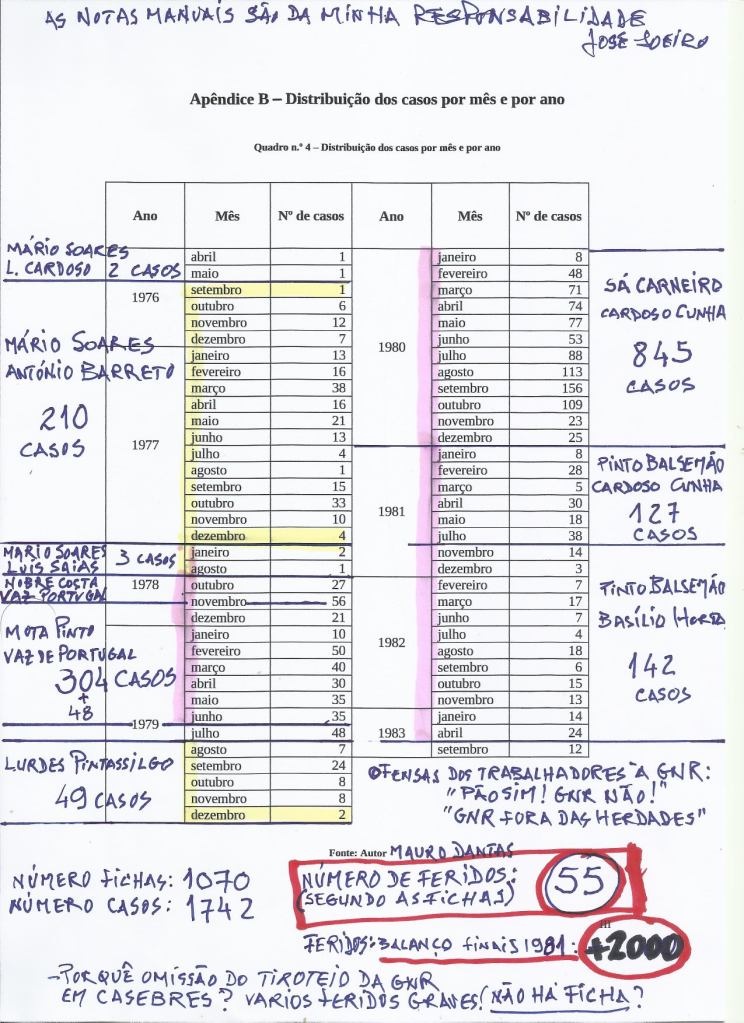 AS NOTAS MANUAIS SÃO DA MINHA RESPONSABILIDADE
JOSÉ SOEIRO
Apêndice B – Distribuição dos casos por mês e por ano
Quadro n.º 4 – Distribuição dos casos por mês e por ano
Ano Mês Nº de casos Ano Mês Nº de casos
MÁRIO SOARES
L. CARDOSO 2 CASOS
1976
abril 1
maio 1
setembro 1
outubro 6
novembro 12
dezembro 7
MÁRIO SOARES
ANTÓNIO BARRETO
210
CASOS
1977
janeiro 13
fevereiro 16
março 38
abril 16
maio 21
junho 13
julho 4
agosto 1
setembro 15
outubro 33
novembro 10
dezembro 4
MARIO SOARES
LUIS SAIAS
3 CASOS
NOBRE COSTA
VAZ PORTUGAL
1978
janeiro 2
agosto 1
outubro 27
novembro 56
dezembro 21
MOTA PINTO
VAZ DE PORTUGAL
304 CASOS
+
48
1979
janeiro 10
fevereiro 50
março 40
abril 30
maio 35
junho 35
julho 48
agosto 7
setembro 24
outubro 8
novembro 8
dezembro 2
LURDES PINTASSILGO
49 CASOS
1980
janeiro 8
fevereiro 48
março 71
abril 74
maio 77
junho 53
julho 88
agosto 113
setembro 156
outubro 109
novembro 23
dezembro 25
SÁ CARNEIRO
CARDOSO CUNHA
845
CASOS
1981
janeiro 8
fevereiro 28
março 5
abril 30
maio 18
julho 38
novembro 14
dezembro 3
PINTO BALSEMÃO
CARDOSO CUNHA
127
CASOS
1982
fevereiro 7
março 17
junho 7
julho 4
agosto 18
setembro 6
outubro 15
novembro 13
PINTO BALSEMÃO
BASÍLIO HORTA
142
CASOS
1983
janeiro 14
abril 24
setembro 12
OFENSAS DOS TRABALHADORES À GNR:
"PÃO SIM! GNR NÃO!"
"GNR FORA DAS HERDADES"
Fonte: Autor MAURO DANTAS
NÚMERO FICHAS: 1070
NÚMERO CASOS: 1742
NÚMERO DE FERIDOS:
(SEGUNDO AS FICHAS)
55
III
FERIDOS: BALANÇO FINAIS 1981: +2000
- PORQUÊ OMISSÃO DO TIROTEIO DA GNR
EM CASEBRES? VARIOS FERIDOS GRAVES! NÃO HÁ FICHA?